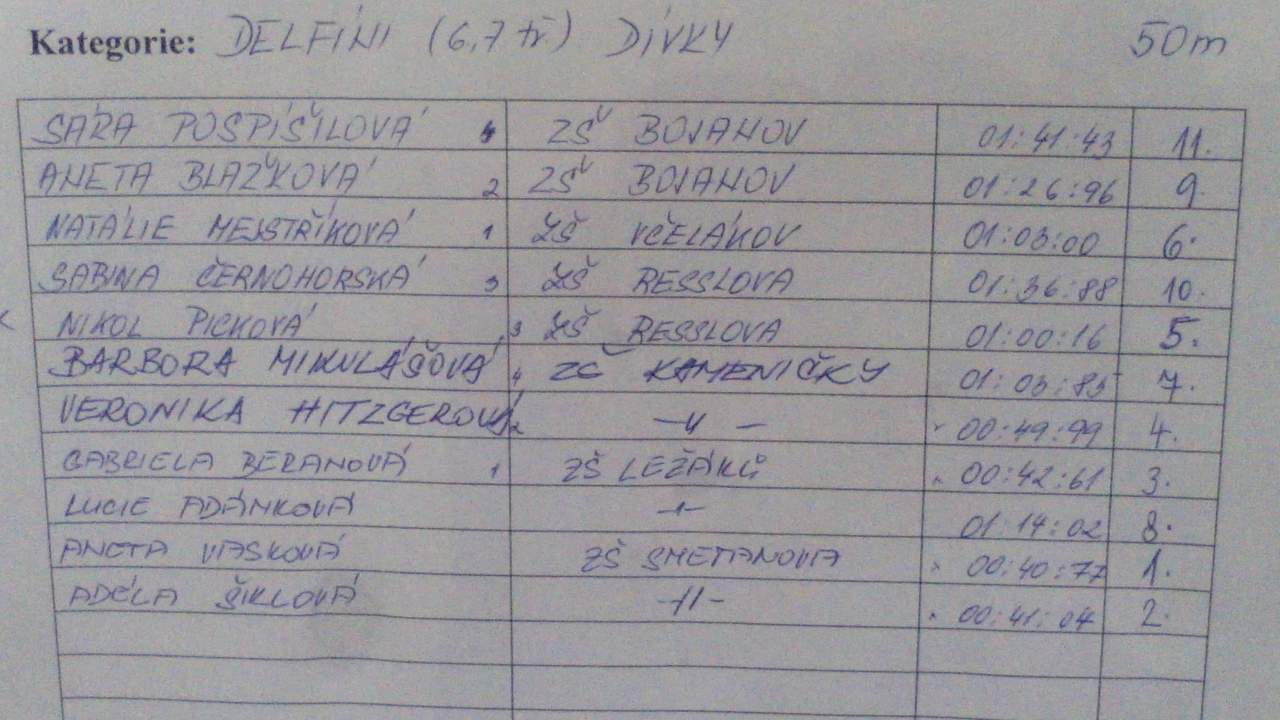 Kategorie: DELFÍNI (6,7 tř) DÍVKY 50m
SÁRA POSPÍŠILOVÁ 4 ZŠ BOJANOV 01:41:43 11.
ANETA BLAŽKOVÁ 2 ZŠ BOJANOV 01:26:96 9.
NATÁLIE MEJSTŘÍKOVÁ 1 ZŠ VČELÁKOV 01:03:00 6.
SABINA ČERNOHORSKÁ 3 ZŠ RESSLOVA 01:36:88 10.
NIKOL PICKOVÁ 3 ZŠ RESSLOVA 01:00:16 5.
BARBORA MIKULÁŠOVÁ 4 ZŠ KAMENIČKY 01:03:83 7.
VERONIKA HITZGEROVÁ 2 –〃– 00:49:99 4.
GABRIELA BERANOVÁ 1 ZŠ LEŽÁKŮ 00:42:61 3.
LUCIE ADÁMKOVÁ –〃– 01:14:02 8.
ANETA VAŠKOVÁ ZŠ SMETANOVA 00:40:77 1.
ADÉLA ŠIKLOVÁ –〃– 00:41:04 2.